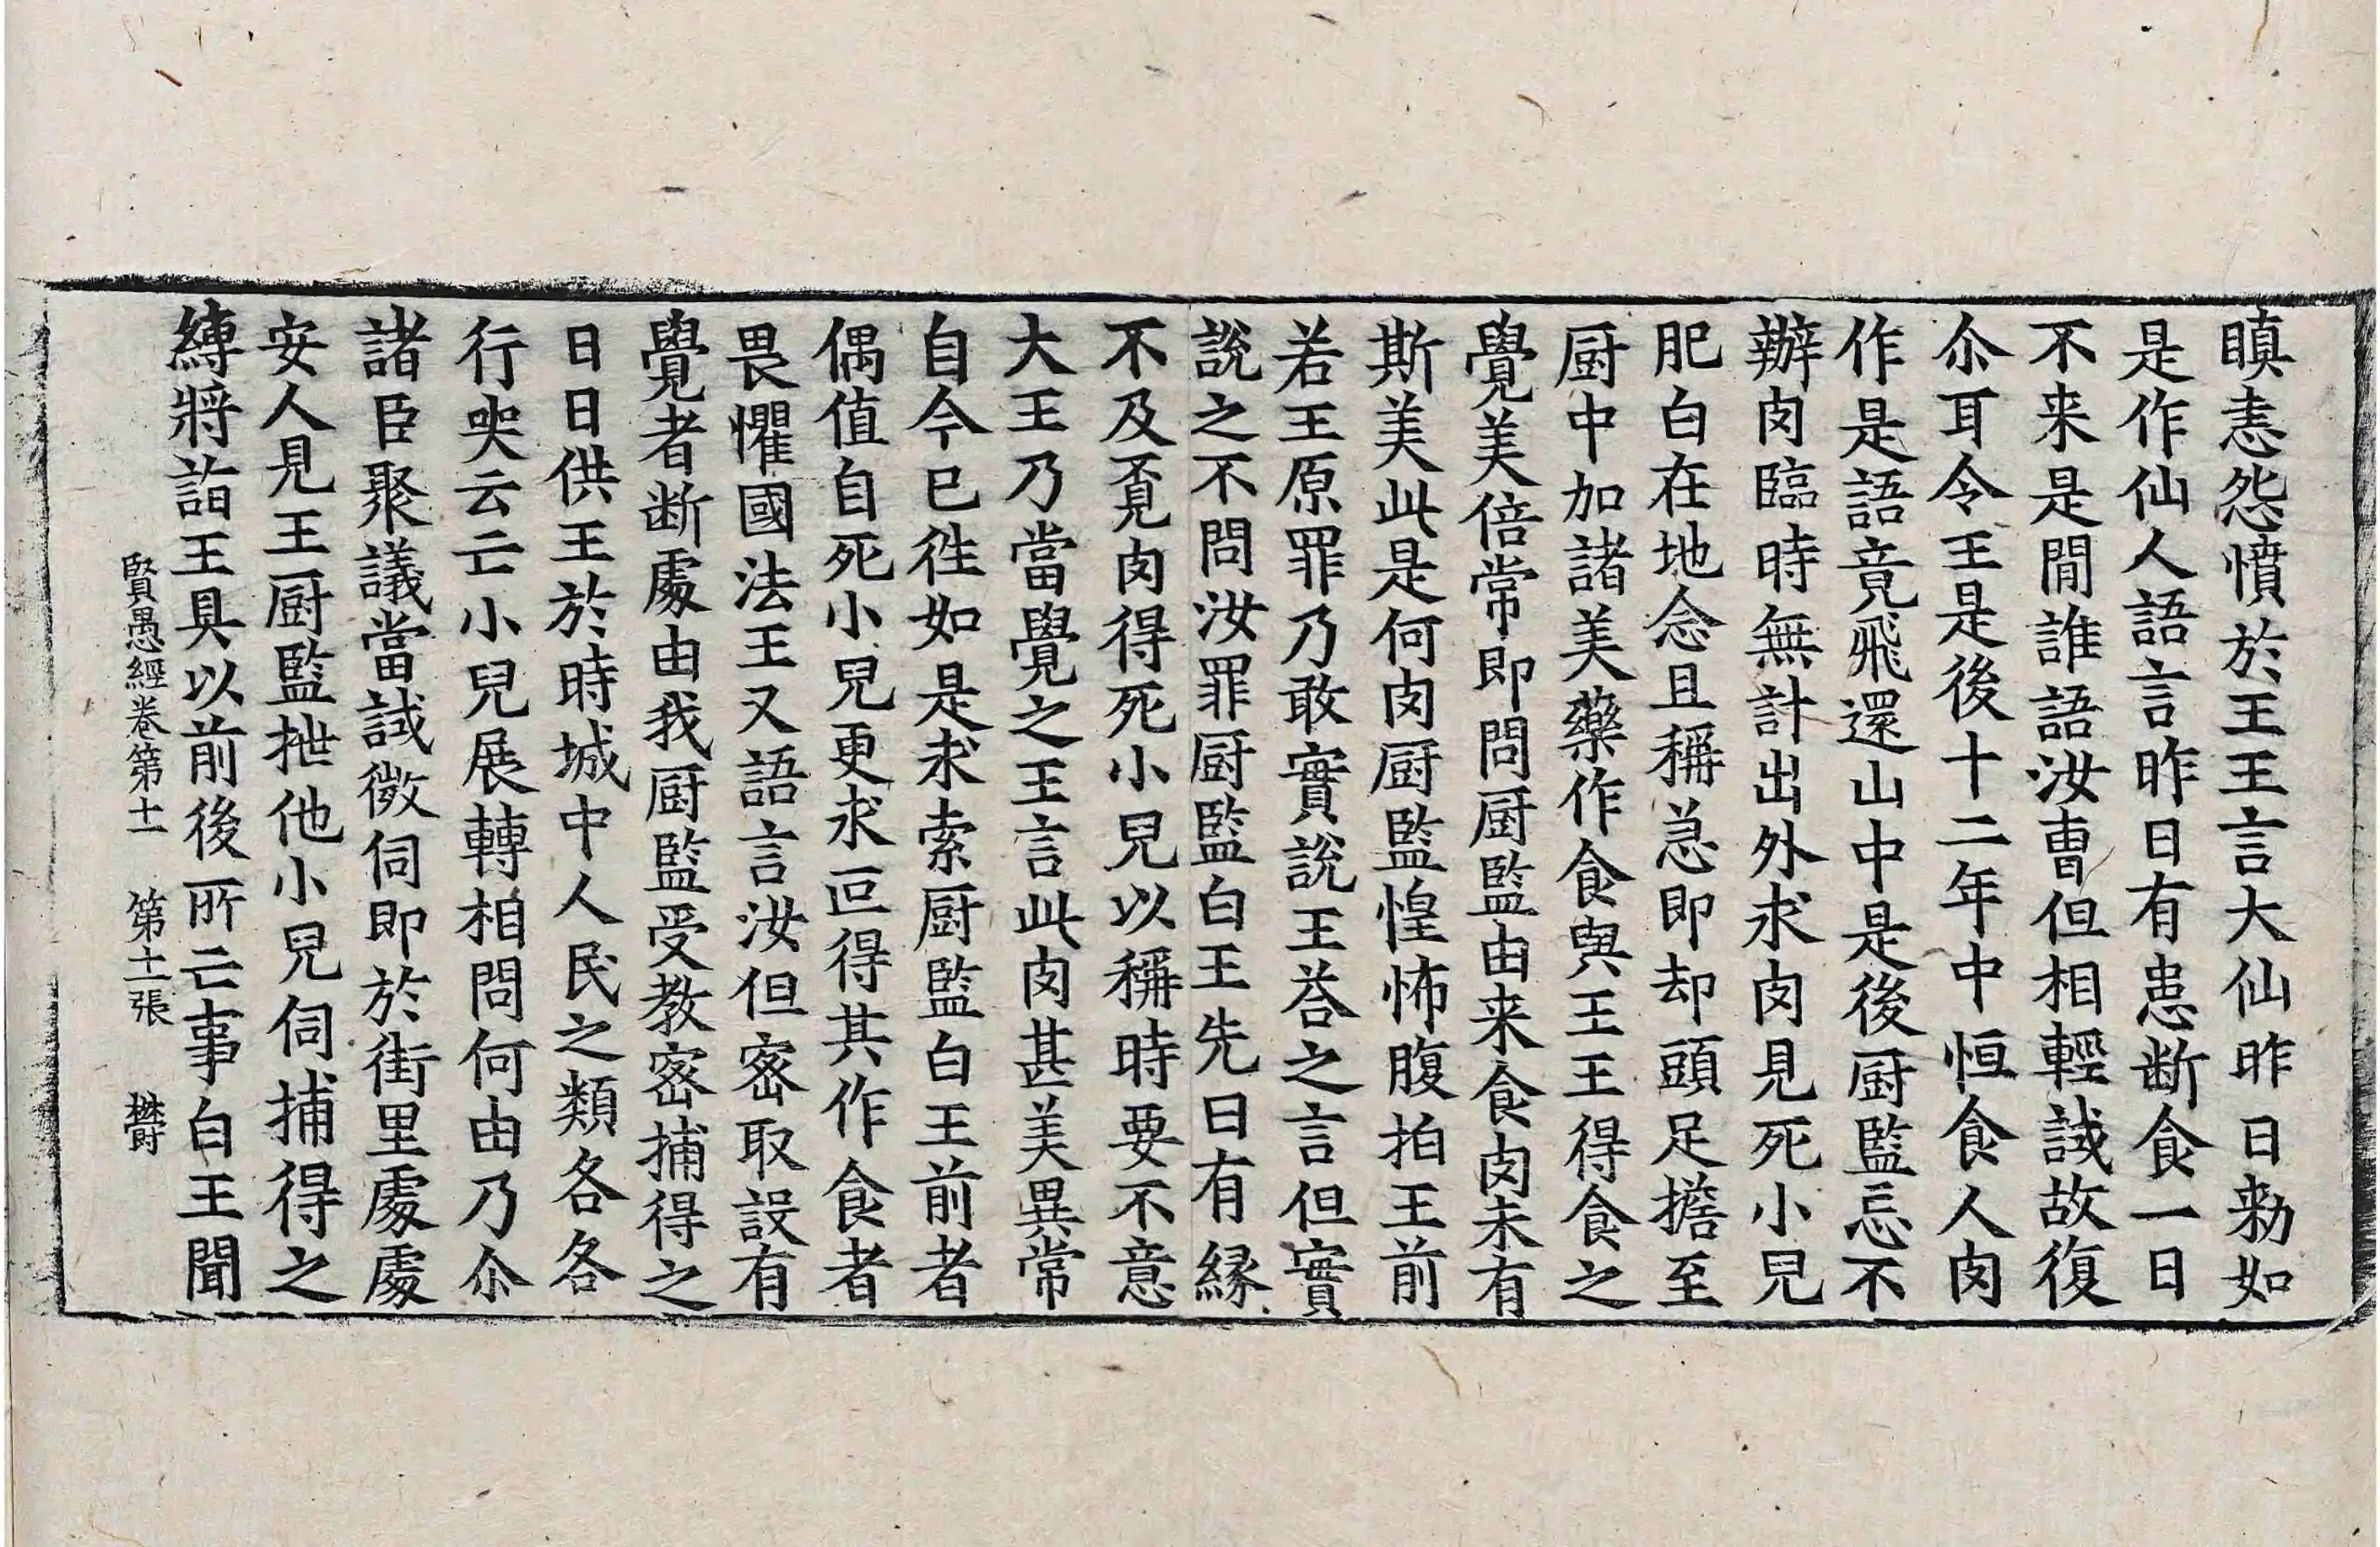 瞋恚怨憤於王王言大仙昨日勑如
是作仙人語言昨日有患断食一日
不来是間誰語汝曺但相輕試故復
尒耳令王是後十二年中恒食人肉
作是語竟飛還山中是後厨監忘不
辦肉臨時無計出外求肉見死小兒
肥白在地念且稱急即却頭足擔至
厨中加諸美藥作食與王王得食之
覺美倍常即問厨監由来食肉未有
斯美此是何肉厨監惶怖腹拍王前
若王原罪乃敢實說王荅之言但實
說之不問汝罪厨監白王先日有縁
不及覔肉得死小兒以稱時要不意
大王乃當覺之王言此肉甚美異常
自今已往如是求索厨監白王前者
偶值自死小兒更求叵得其作食者
畏懼國法王又語言汝但密取設有
覺者断處由我厨監受教密捕得之
日日供王於時城中人民之類各各
行哭云亡小兒展轉相問何由乃尒
諸臣聚議當試微伺即於街里處處
安人見王厨監抴他小兒伺捕得之
縛將詣王具以前後所亡事白王聞
賢愚經卷第十一　第十二張　欝